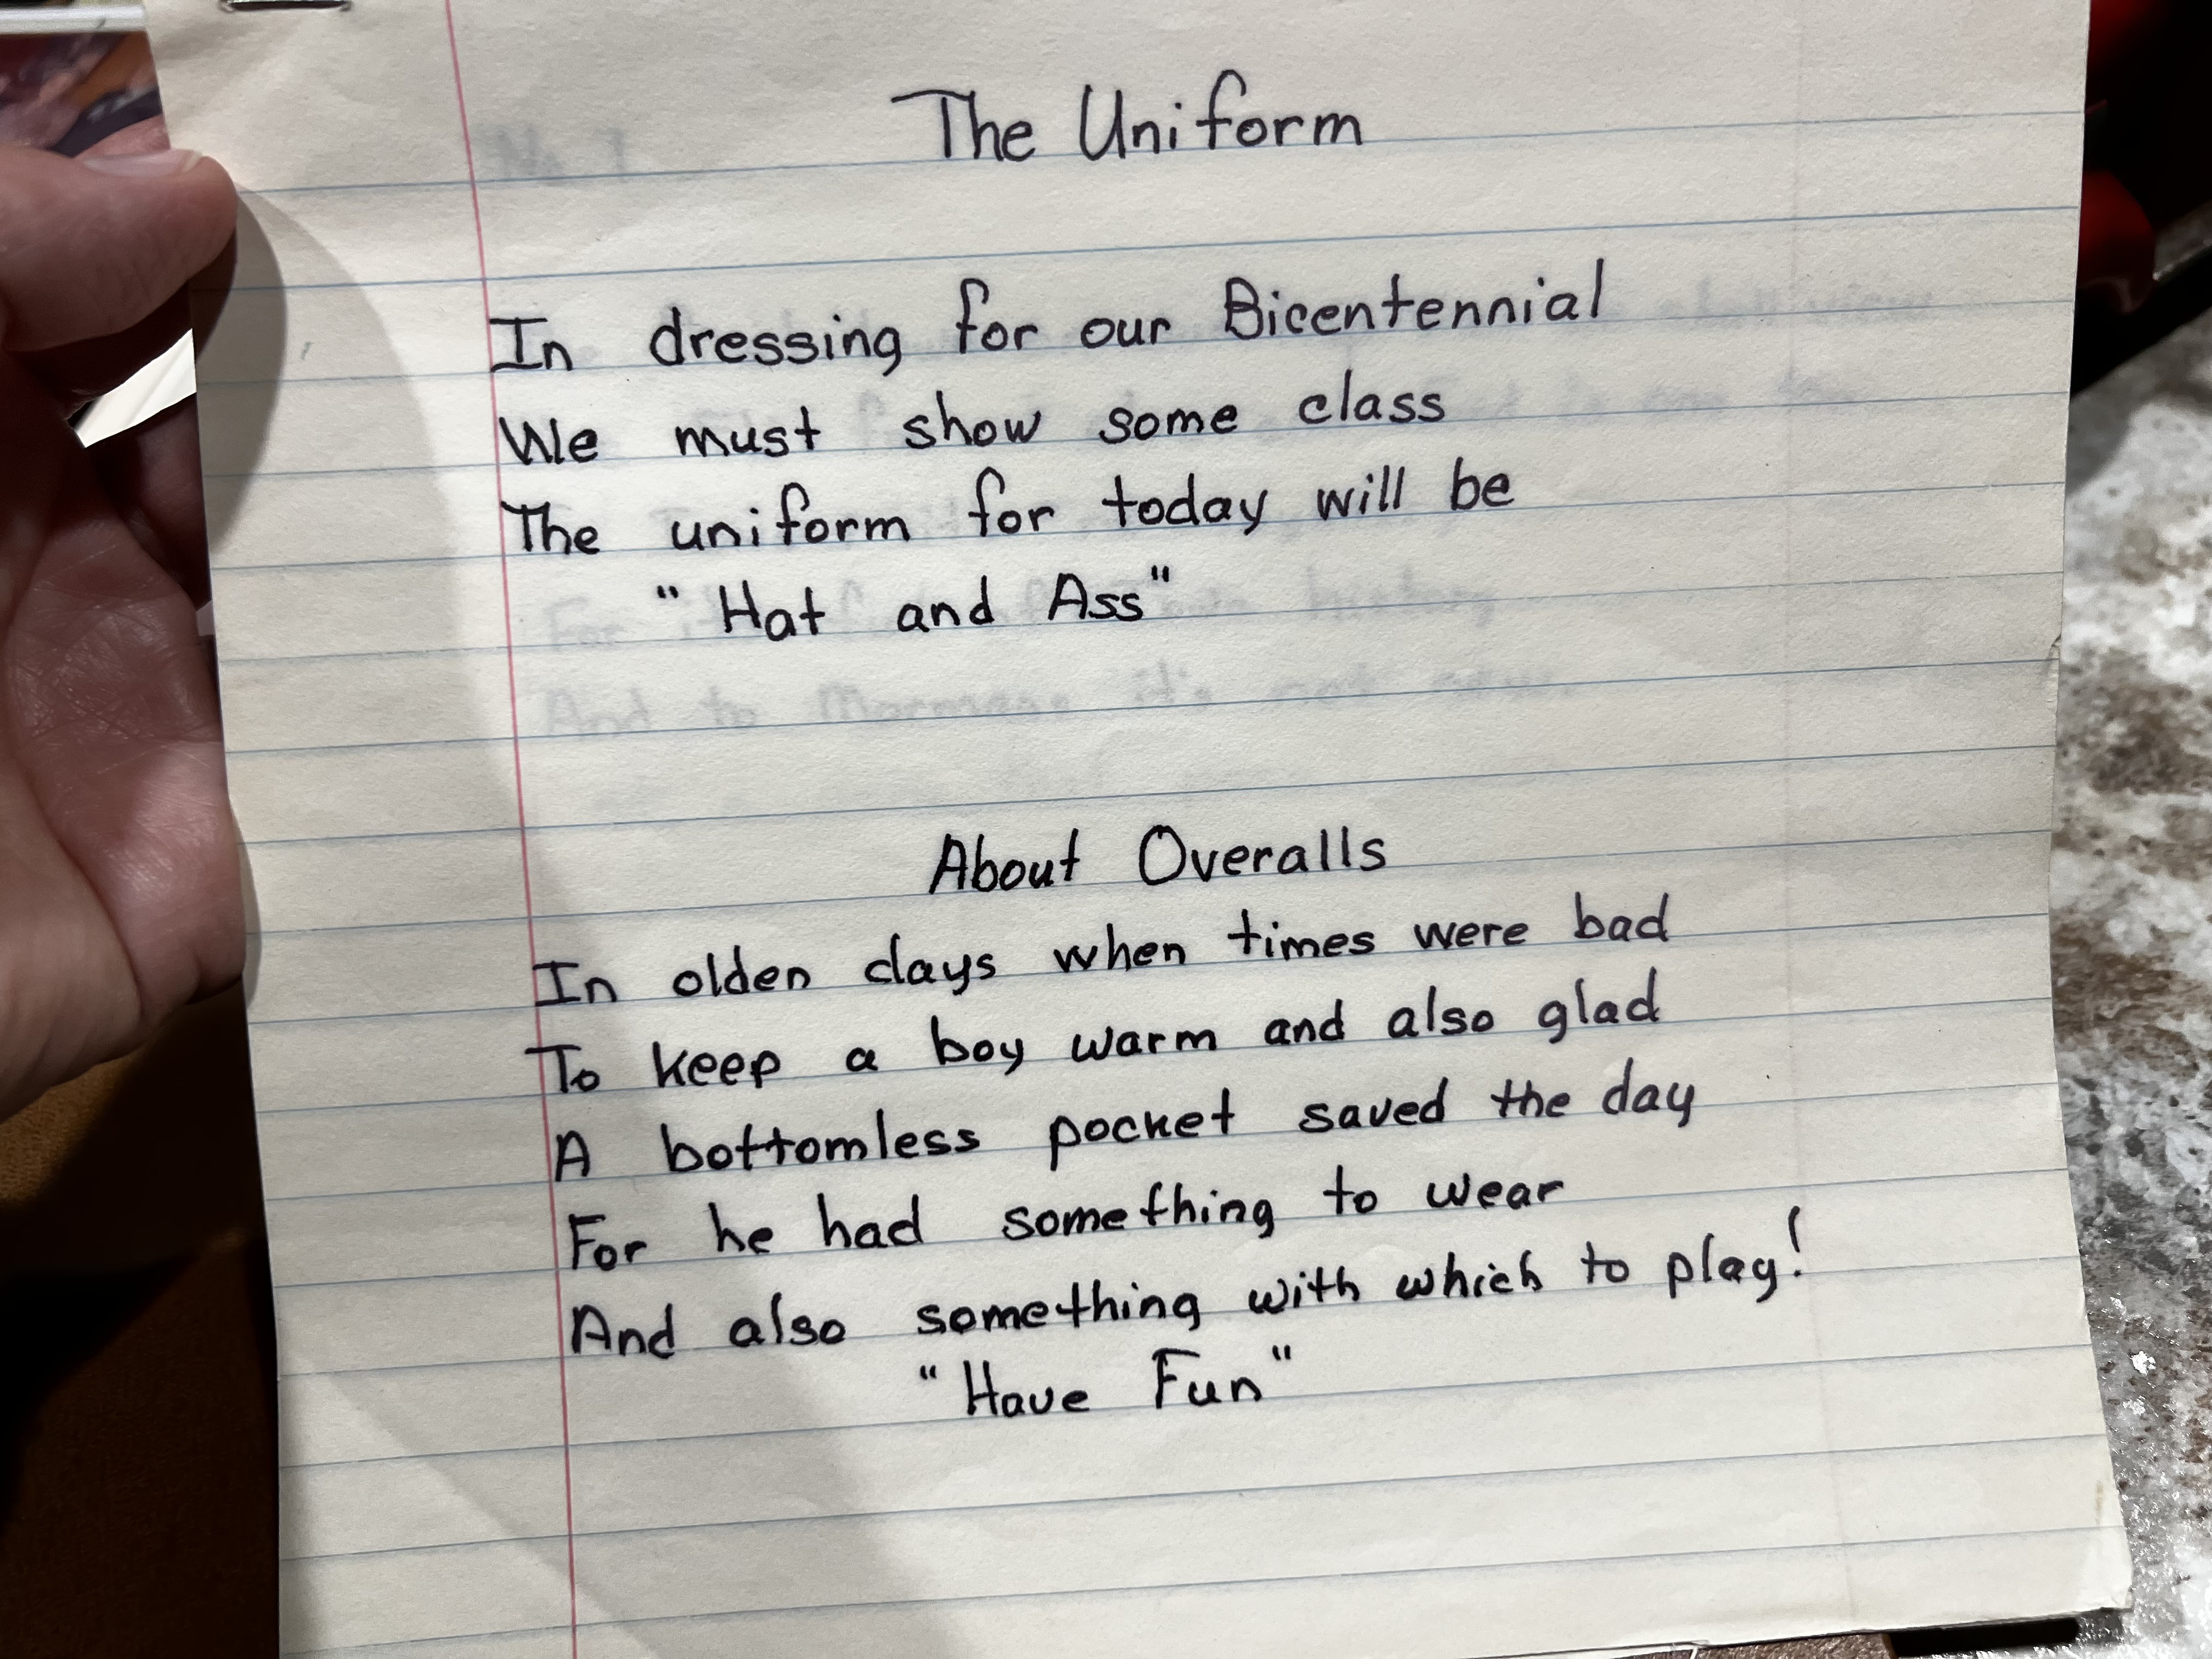 The Uniform
In dressing for our Bicentennial
We must show some class
The uniform for today will be
"Hat and Ass"
And to Mormons it's not new.
About Overalls
In olden days when times were bad
To keep a boy warm and also glad
A bottomless pocket saved the day
For he had something to wear
And also something with which to play!
"Have Fun"